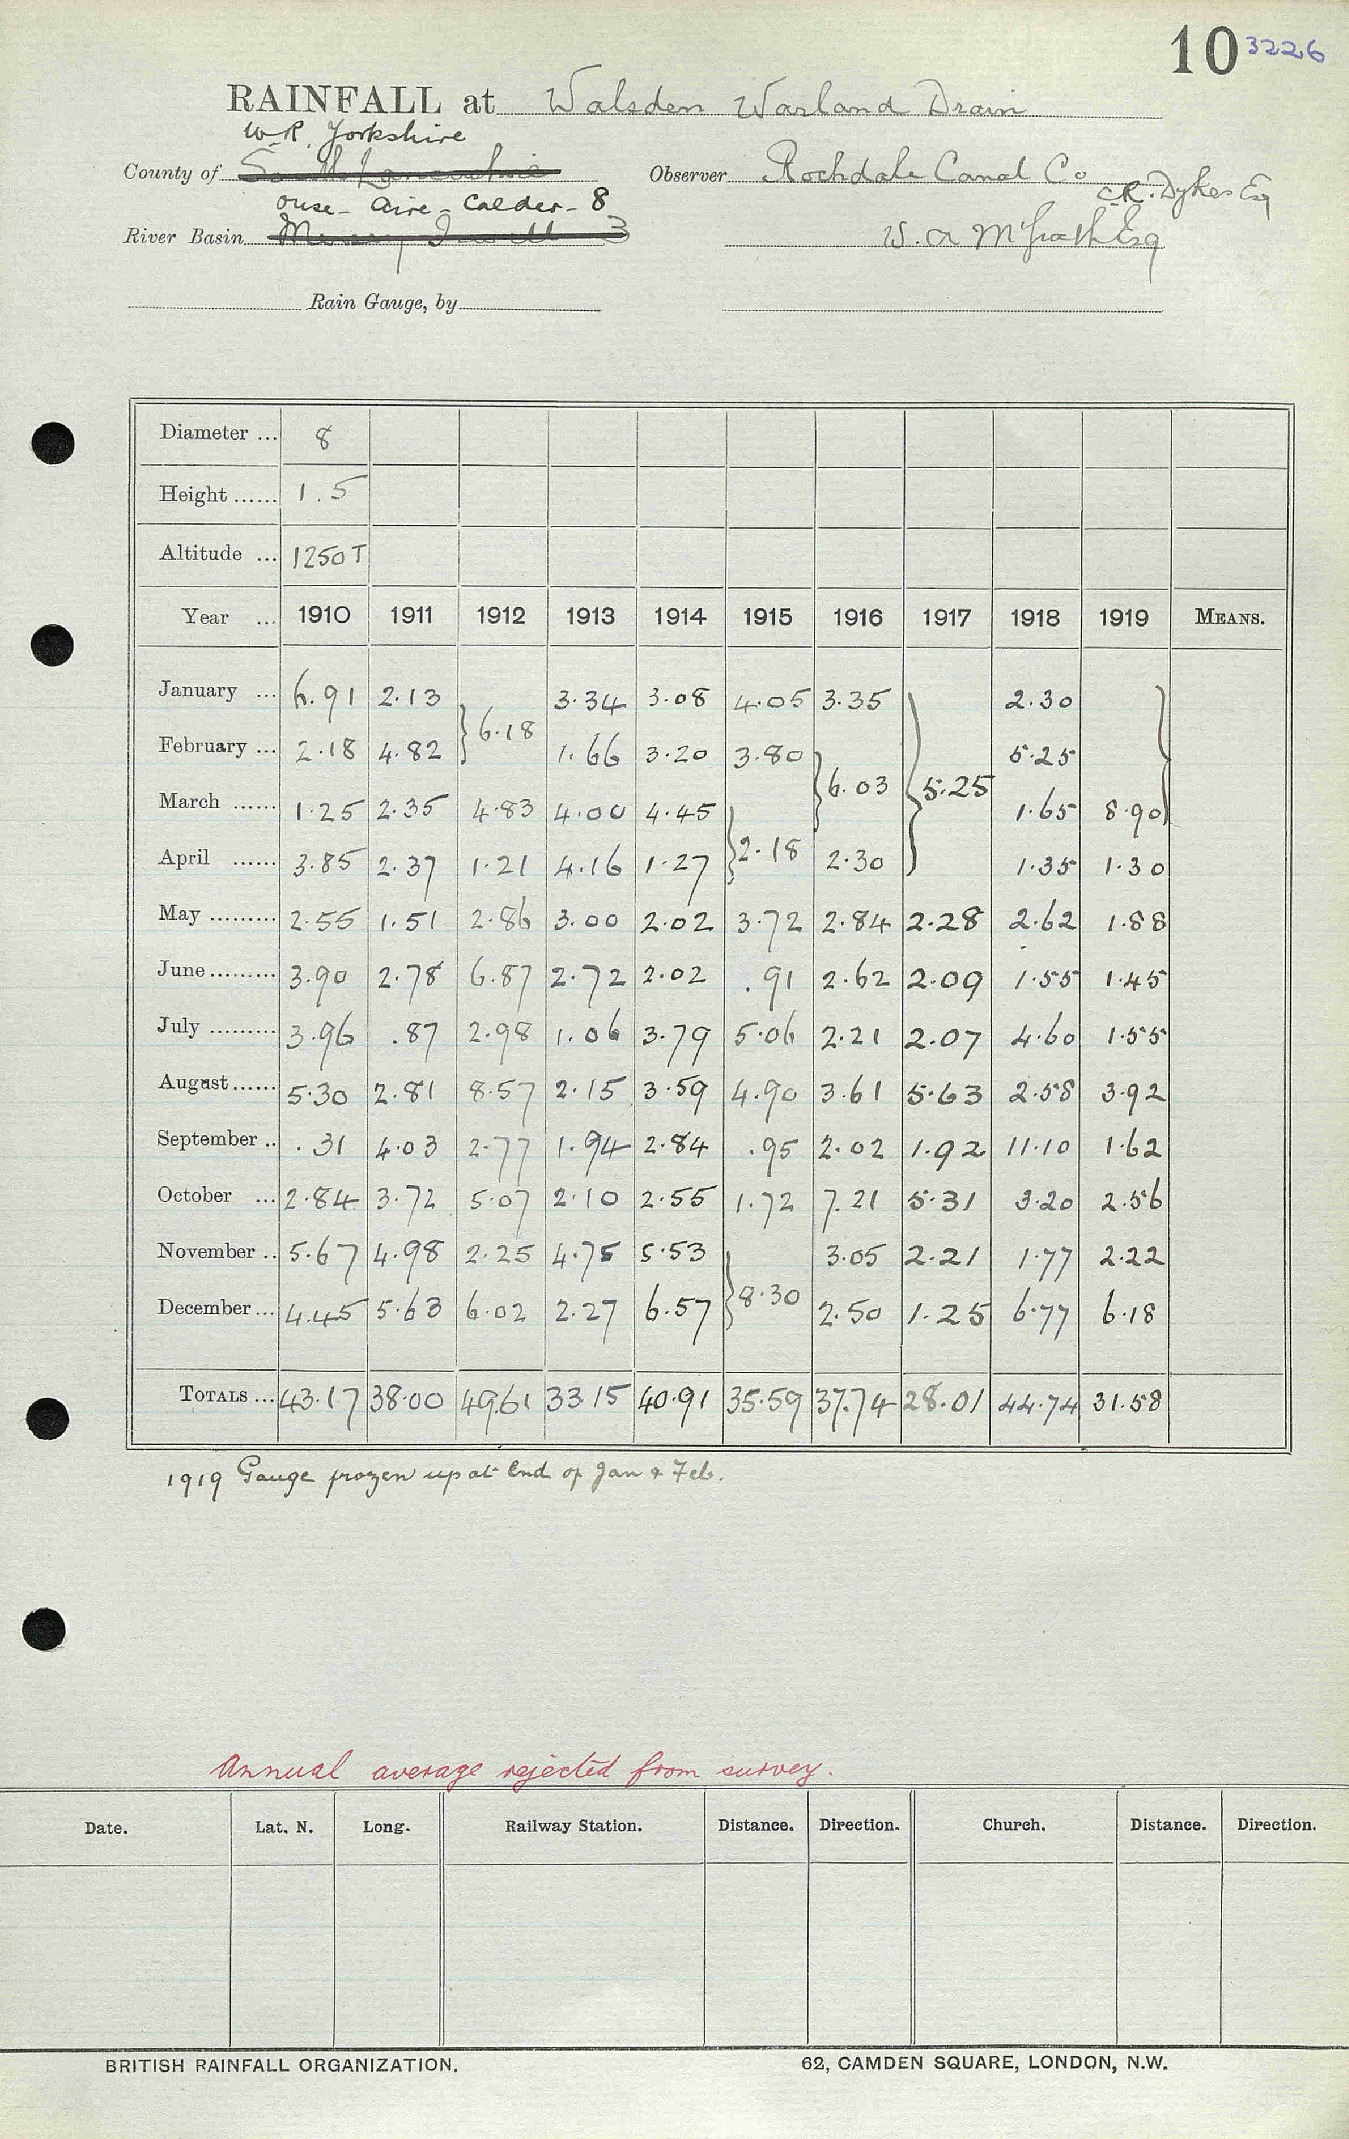 10 3226
RAINFALL at Walsden Warland Drain
W.R. Yorkshire
County of South Lancashire Observer Rochdale Canal Co
C.R. Dykes Esq
Ouse - Aire - Calder - 8
River Basin Mersey Irwell 3 W. A McGrath Esq
Rain Gauge, by
Diameter ... 8
Height ...... 1.5
Altitude ... 1250 T
Year ... 1910 1911 1912 1913 1914 1915 1916 1917 1918 1919 MEANS.
January ... 6.91 2.13 3.34 3.08 4.05 3.35 2.30
} 6.18
February ... 2.18 4.82 1.66 3.20 3.80 5.25
} 6.03 } 5.25 }
March ...... 1.25 2.35 4.83 4.00 4.45 1.65 8.90
} 2.18
April ...... 3.85 2.37 1.21 4.16 1.27 2.30 1.35 1.30
May ......... 2.55 1.51 2.86 3.00 2.02 3.72 2.84 2.28 2.62 1.88
June ......... 3.90 2.78 6.87 2.72 2.02 .91 2.62 2.09 1.55 1.45
July ......... 3.96 .87 2.98 1.06 3.79 5.06 2.21 2.07 4.60 1.55
August ...... 5.30 2.81 8.57 2.15 3.59 4.90 3.61 5.63 2.58 3.92
September .. .31 4.03 2.77 1.94 2.84 .95 2.02 1.92 11.10 1.62
October ... 2.84 3.72 5.07 2.10 2.55 1.72 7.21 5.31 3.20 2.56
November .. 5.67 4.98 2.25 4.75 5.53 3.05 2.21 1.77 2.22
} 8.30
December ... 4.45 5.63 6.02 2.27 6.57 2.50 1.25 6.77 6.18
TOTALS ... 43.17 38.00 49.61 33.15 40.91 35.59 37.74 28.01 44.74 31.58
1919 Gauge frozen up at end of Jan & Feb.
Annual average rejected from survey.
Date. Lat. N. Long. Railway Station. Distance. Direction. Church. Distance. Direction.
BRITISH RAINFALL ORGANIZATION. 62, CAMDEN SQUARE, LONDON, N.W.